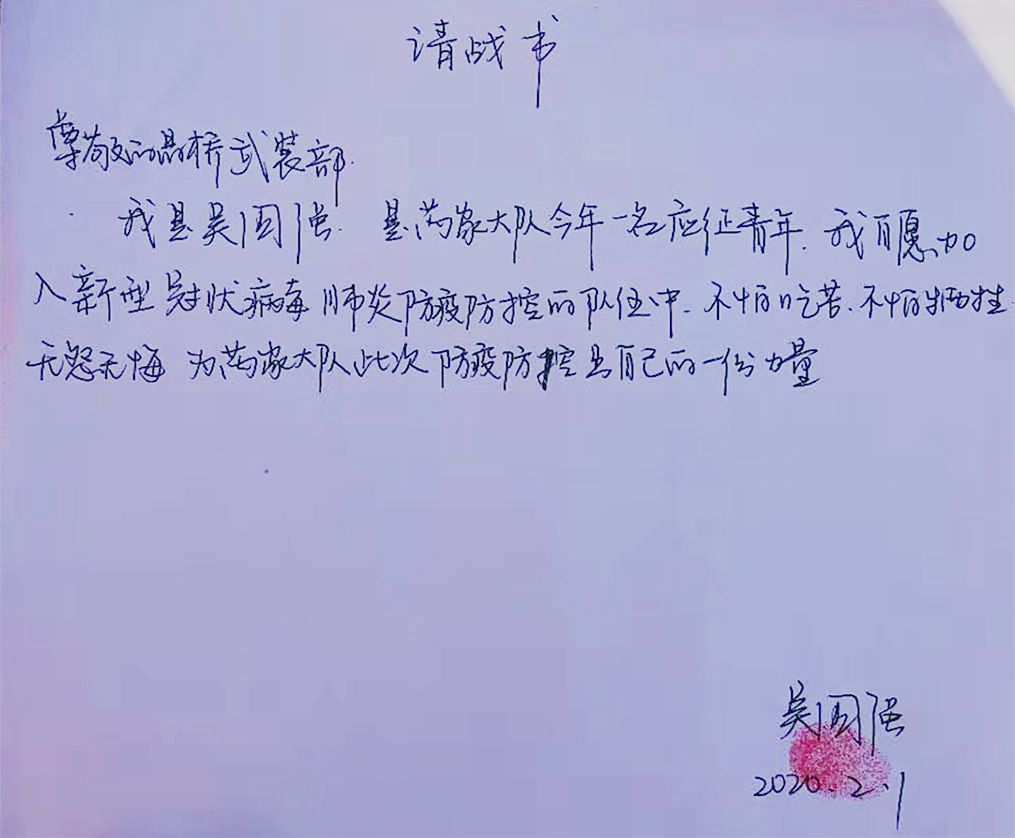 请战书
尊敬的晶桥武装部
我是吴国强. 是芮家大队今年一名应征青年. 我自愿加
入新型冠状病毒肺炎防疫防控的队伍中. 不怕吃苦. 不怕牺牲.
无怨无悔 为芮家大队此次防疫防控出自己的一份力量
吴国强
2020.2.1